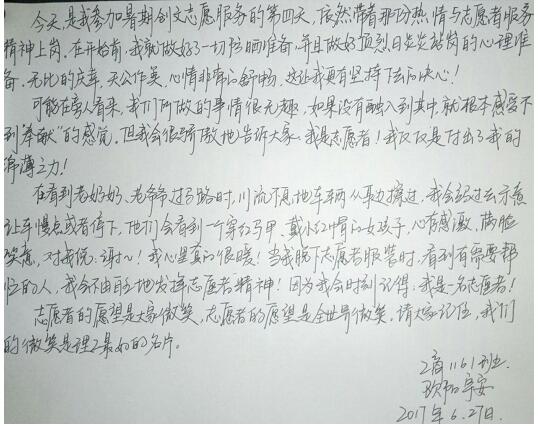 今天,是我参加暑期创文志愿服务的第四天,依然带着那份热情与志愿者服务
精神上岗。在开始前,我就做好了一切防晒准备,并且做好顶烈日炎炎站岗的心理准
备。无比的庆幸,天公作美,心情非常的舒畅,这让我更有坚持下去的决心!
可能在旁人看来,我们所做的事情很无趣,如果没有融入到其中,就根本感受不
到奉献"的感觉,但我会很骄傲地告诉大家:我是志愿者!我仅仅是付出了我的
绵薄之力!
在看到老奶奶、老爷爷过马路时,川流不息地车辆从身边擦过,我会经过去示意
让车慢点或者停下,他们会看到一个穿红马甲,戴小红帽的女孩子,心有感激,满脸
笑意,对我说:谢谢~!我心里真的很暖!当我脱下志愿者服装时,看到有需要帮
忙的人,我会不由自主地发挥志愿者精神!因为我会时刻记得:我是一名志愿者!
志愿者的愿望是大家微笑,志愿者的愿望是全世界微笑,请大家记住,我们
的微笑是理工最好的名片。
工商1161班
欧阳宇安
2017年6.27日.